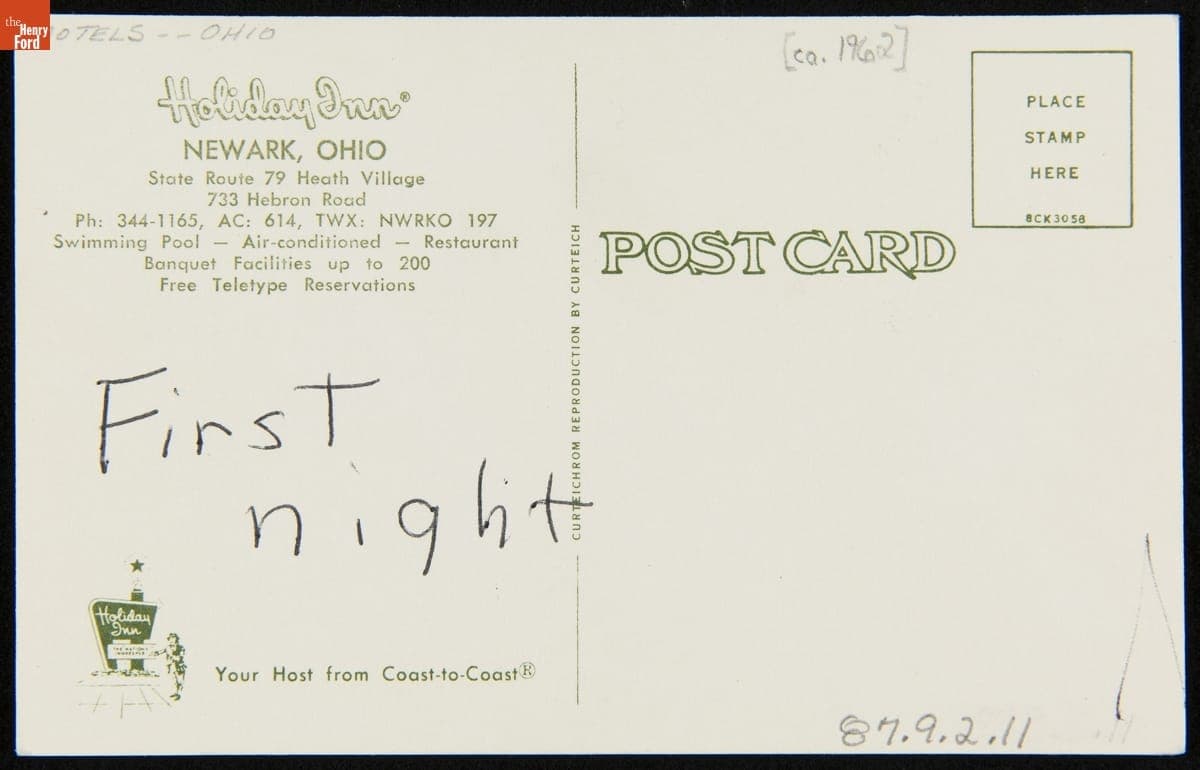 the
Henry
Ford
OTELS -- OHIO
[ca. 1962]
Holiday Inn®
NEWARK, OHIO
State Route 79 Heath Village
733 Hebron Road
Ph: 344-1165, AC: 614, TWX: NWRKO 197
Swimming Pool — Air-conditioned — Restaurant
Banquet Facilities up to 200
Free Teletype Reservations
First
night
Holiday
Inn
THE NATION'S
INNKEEPER
Your Host from Coast-to-Coast®
CURTEICHROM REPRODUCTION BY CURTEICH
PLACE
STAMP
HERE
8CK3058
POST CARD
87.9.2.11